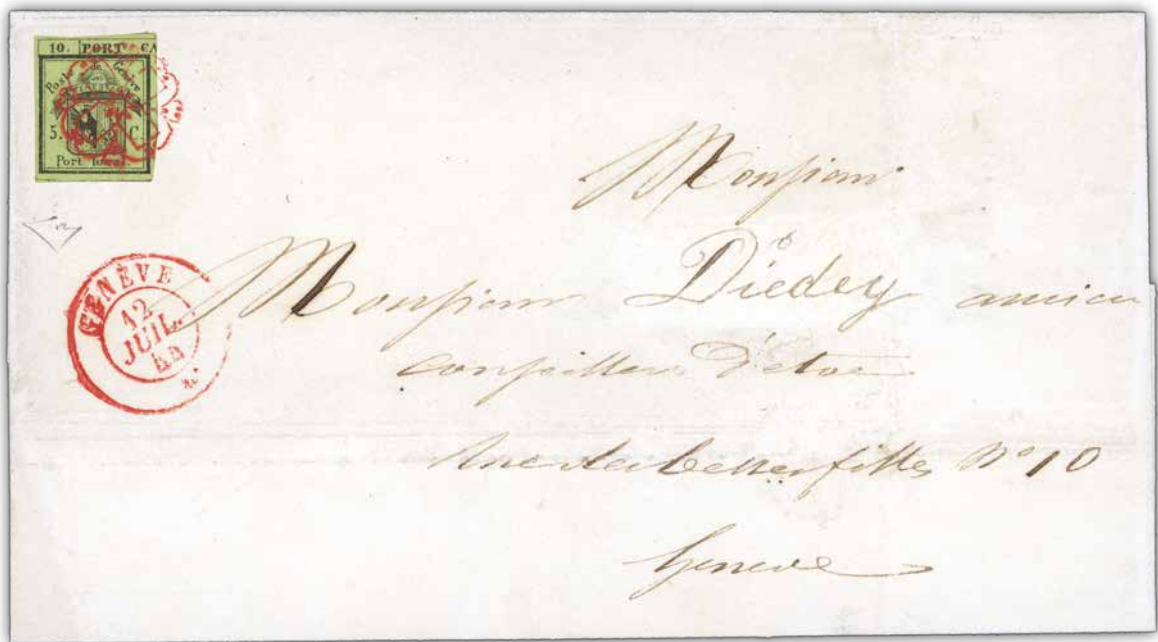 10. PORT CA
Poste de Genève
5. C.
Port local.
GENÈVE
12
JUIL.
44
Monsieur
Monsieur Diedey ancien
conseiller d'etat
Rue des belles filles N° 10
Geneve